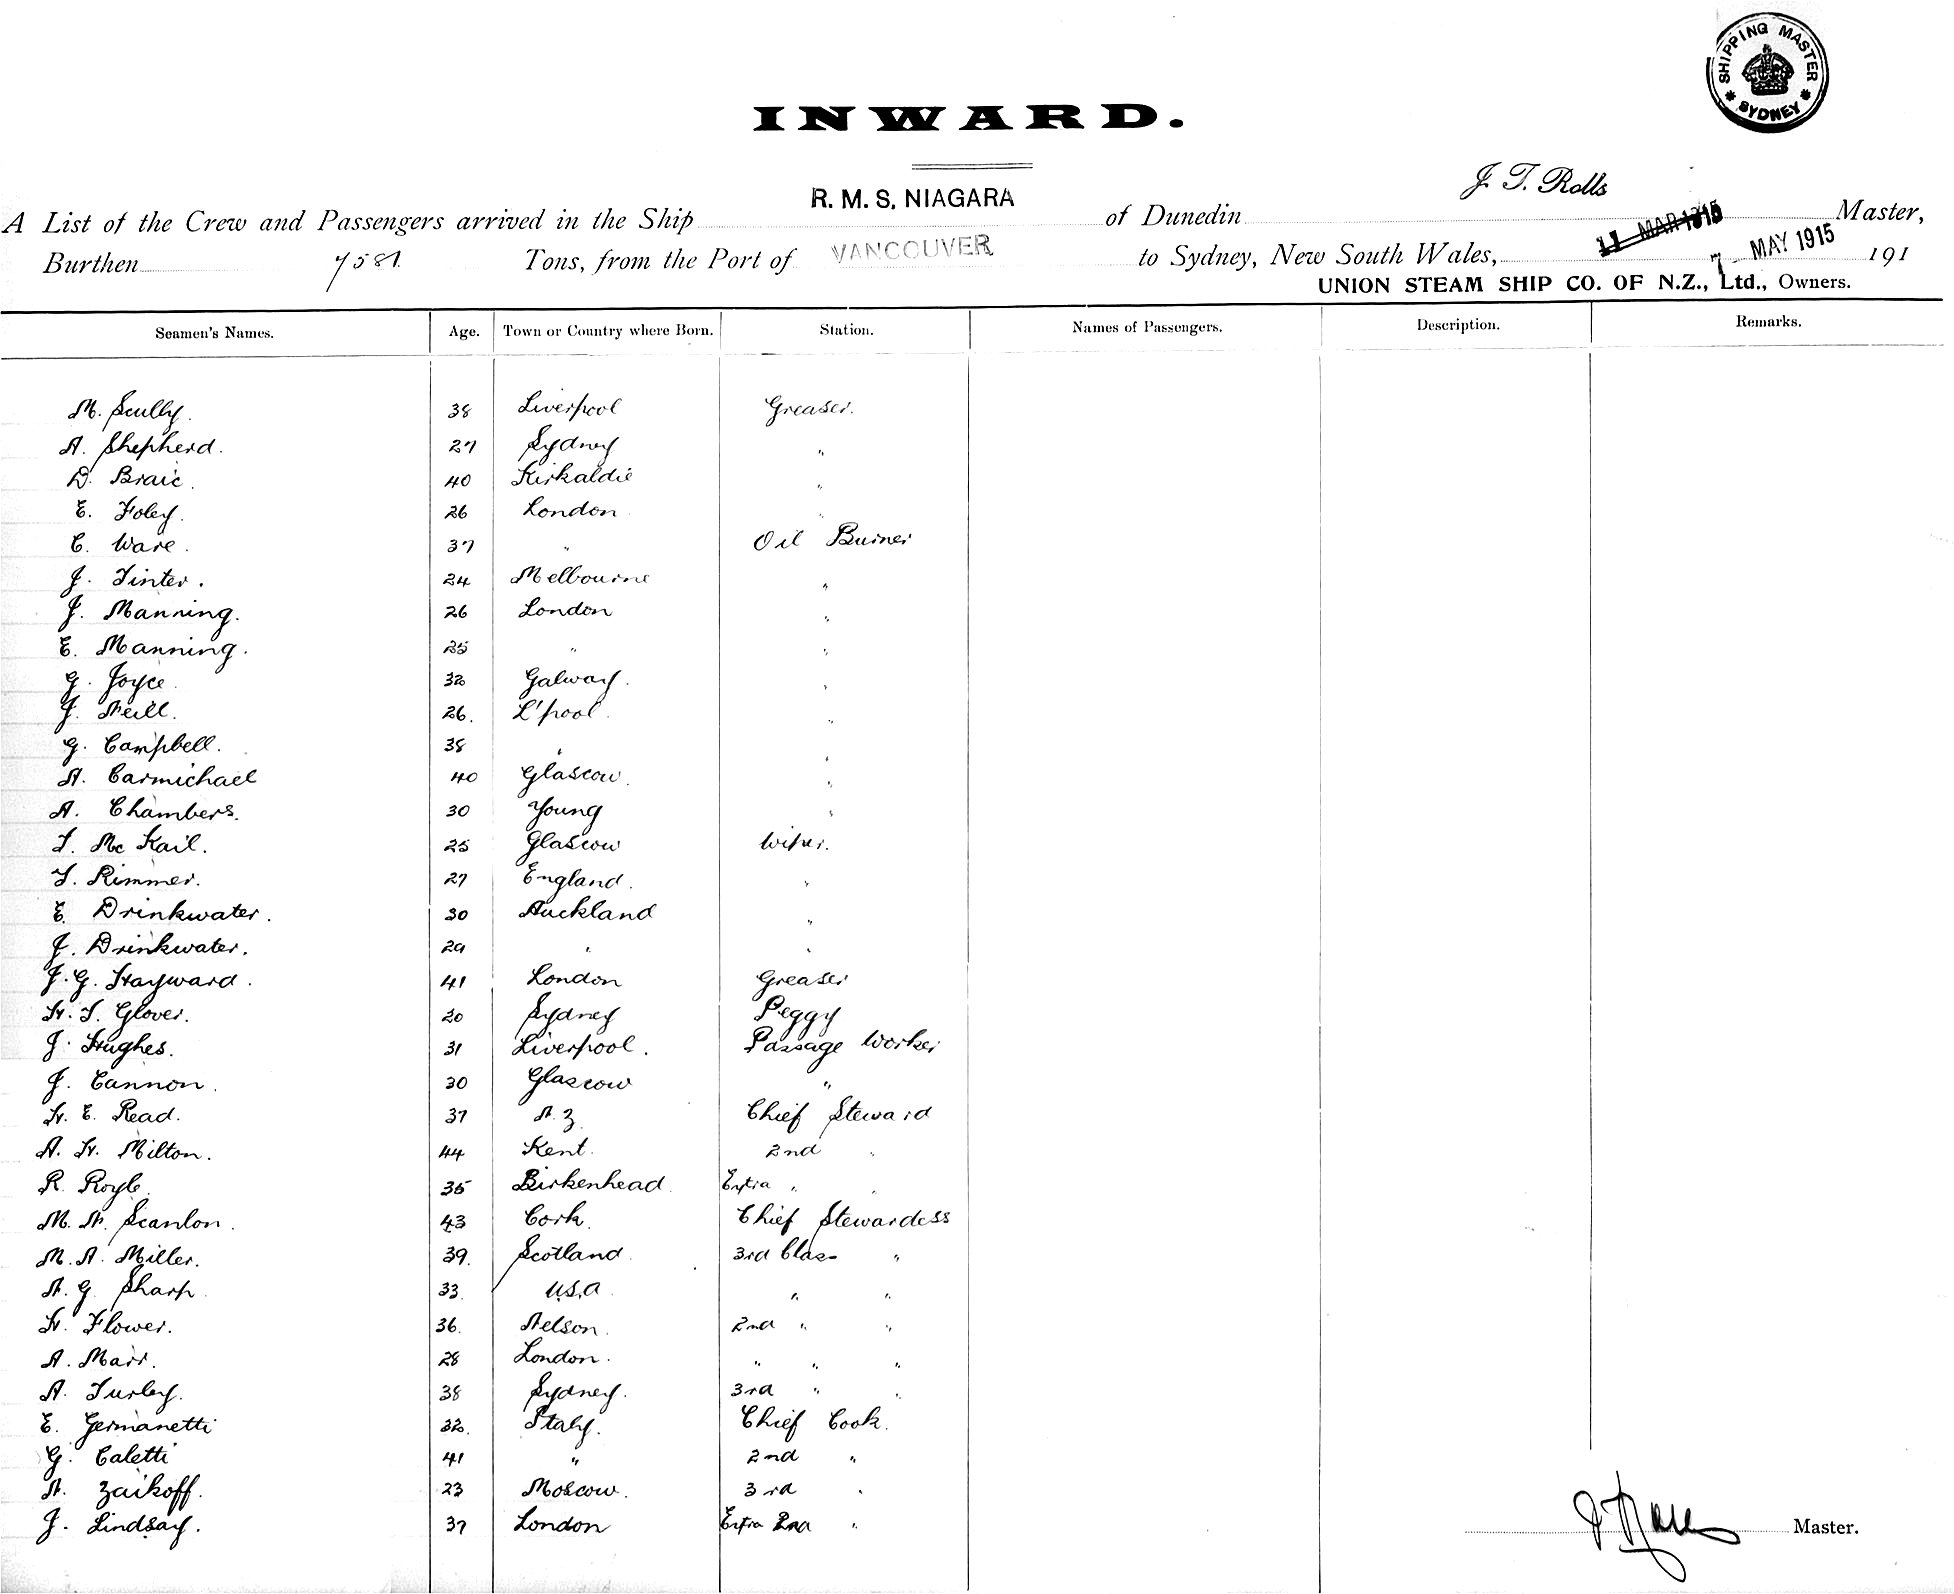 SHIPPING MASTER
* SYDNEY *
INWARD.
A List of the Crew and Passengers arrived in the Ship R. M. S. NIAGARA of Dunedin J. T. Rolls Master,
Burthen 7581 Tons, from the Port of VANCOUVER to Sydney, New South Wales, 11 MAR 1915 7 MAY 1915 191
UNION STEAM SHIP CO. OF N.Z., Ltd., Owners.
Seamen's Names. Age. Town or Country where Born. Station. Names of Passengers. Description. Remarks.
M. Scully. 38 Liverpool Greaser.
A. Shepherd. 27 Sydney "
D. Braic. 40 Kirkaldie "
E. Foley. 26 London "
C. Ware. 37 " Oil Burner
J. Tinter. 24 Melbourne "
J. Manning. 26 London "
E. Manning. 25 " "
G. Joyce. 32 Galway. "
J. Neill. 26. L'pool. "
G. Campbell. 38 " "
A. Carmichael 40 Glascow. "
A. Chambers. 30 Young "
T. Mc Kail. 25 Glascow Wiper.
T. Rimmer. 27 England. "
E. Drinkwater. 30 Auckland "
J. Drinkwater. 29 " "
J. G. Hayward. 41 London Greaser
H. T. Glover. 20 Sydney Peggy
J. Hughes. 31 Liverpool. Passage Worker
J. Cannon. 30 Glascow "
H. E. Read. 37 N. Z. Chief Steward
A. H. Milton. 44 Kent. 2nd "
R. Royle. 35 Birkenhead. Extra " "
M. N. Scanlon. 43 Cork. Chief Stewardess
M. A. Miller. 39. Scotland. 3rd Clas "
N. G. Sharp. 33. U.S.A " "
H. Flower. 36. Nelson. 2nd " "
A. Marr. 28 London. " " "
A. Turley. 38 Sydney. 3rd " "
E. Germanetti 32. Italy. Chief Cook.
G. Caletti 41 " 2nd "
N. Zaikoff. 23 Moscow. 3rd "
J. Lindsay. 37 London Extra 2nd "
J T Rolls Master.